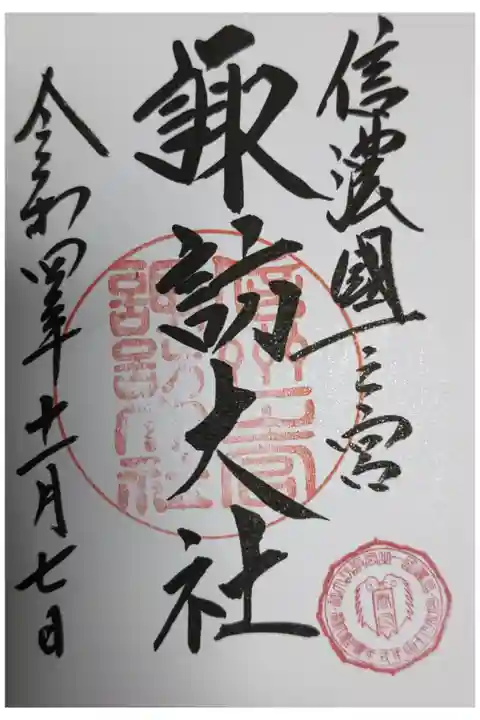 信濃國一之宮
諏訪大社
令和四年十一月七日